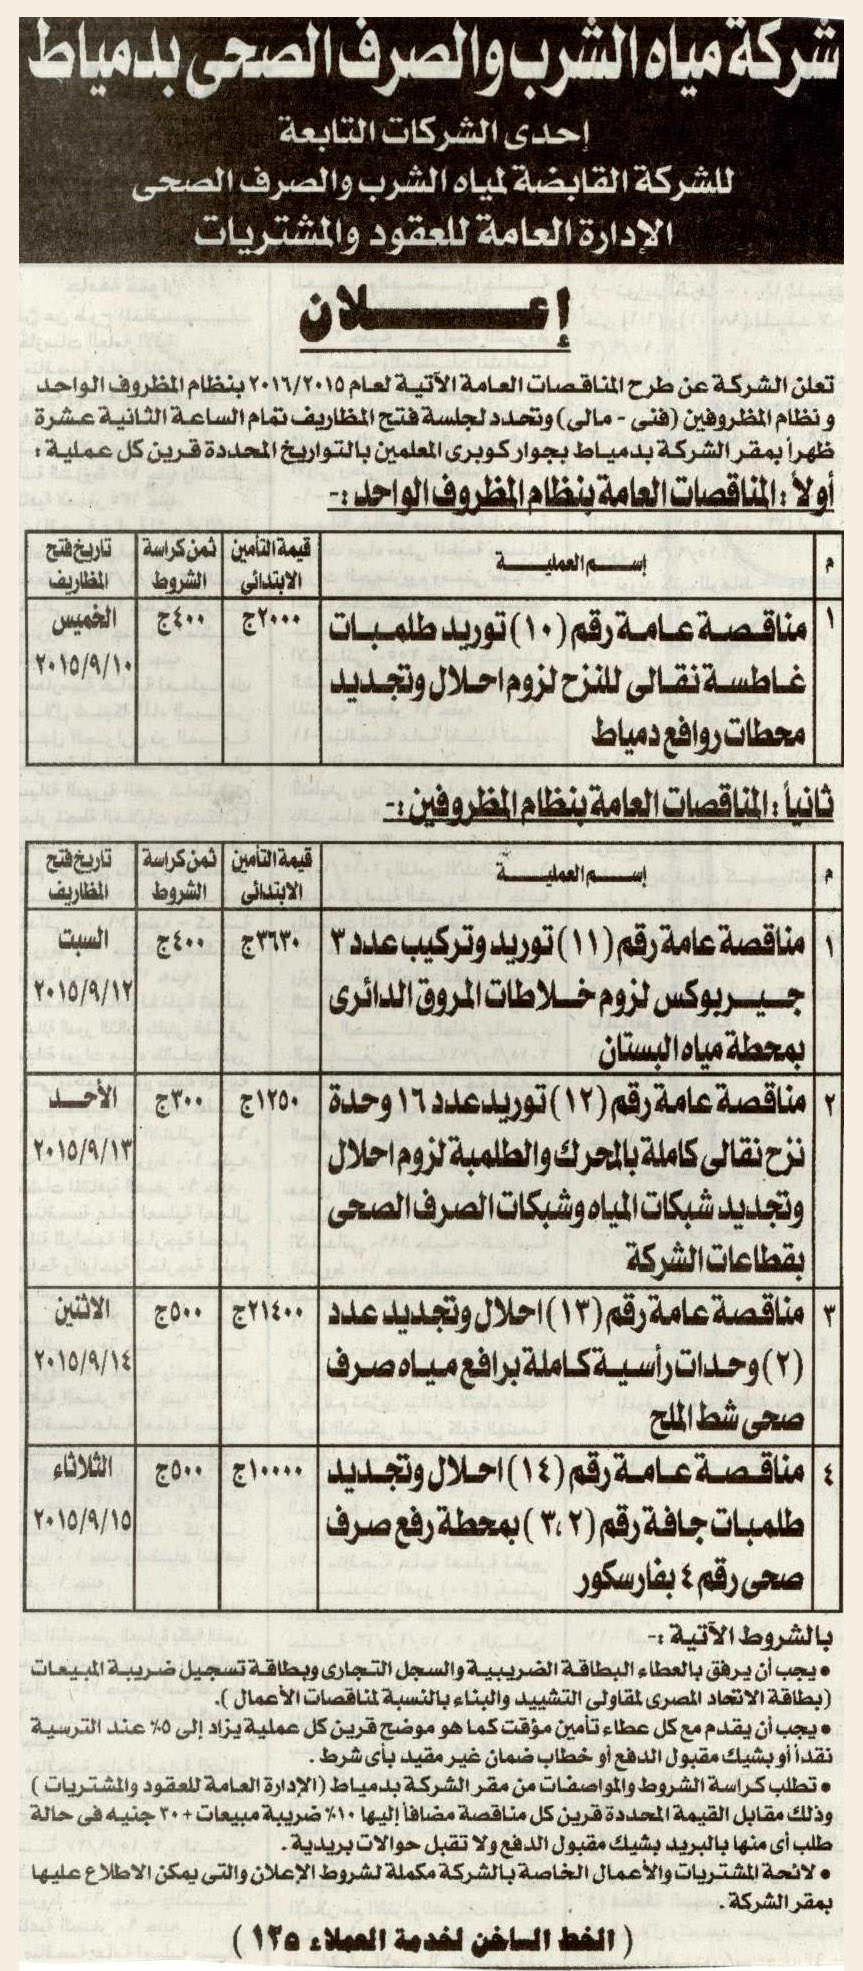 شركة مياه الشرب والصرف الصحى بدمياط
إحدى الشركات التابعة
للشركة القابضة لمياه الشرب والصرف الصحى
الإدارة العامة للعقود والمشتريات
إعــــلان
تعلن الشركة عن طرح المناقصات العامة الآتية لعام ٢٠١٦/٢٠١٥ بنظام المظروف الواحد
ونظام المظروفين (فنى - مالى) وتحدد لجلسة فتح المظاريف تمام الساعة الثانية عشرة
ظهراً بمقر الشركة بدمياط بجوار كوبرى المعلمين بالتواريخ المحددة قرين كل عملية :
أولاً : المناقصات العامة بنظام المظروف الواحد :-
م | إسم العملية | قيمة التأمين الابتدائى | ثمن كراسة الشروط | تاريخ فتح المظاريف
١ | مناقصة عامة رقم (١٠) توريد طلمبات | ٢٠٠٠ج | ٤٠٠ج | الخميس
غاطسة نقالى للنزح لزوم احلال وتجديد | ٢٠١٥/٩/١٠
محطات روافع دمياط
ثانياً : المناقصات العامة بنظام المظروفين :-
م | إسم العملية | قيمة التأمين الابتدائى | ثمن كراسة الشروط | تاريخ فتح المظاريف
١ | مناقصة عامة رقم (١١) توريد وتركيب عدد ٣ | ٣٦٣٠ج | ٤٠٠ج | السبت
جيربوكس لزوم خلاطات المروق الدائرى | ٢٠١٥/٩/١٢
بمحطة مياه البستان
٢ | مناقصة عامة رقم (١٢) توريد عدد ١٦ وحدة | ١٢٥٠ج | ٣٠٠ج | الأحد
نزح نقالى كاملة بالمحرك والطلمبة لزوم احلال | ٢٠١٥/٩/١٣
وتجديد شبكات المياه وشبكات الصرف الصحى
بقطاعات الشركة
٣ | مناقصة عامة رقم (١٣) احلال وتجديد عدد | ٢١٤٠٠ج | ٥٠٠ج | الاثنين
(٢) وحدات رأسية كاملة برافع مياه صرف | ٢٠١٥/٩/١٤
صحى شط الملح
٤ | مناقصة عامة رقم (١٤) احلال وتجديد | ١٠٠٠٠ج | ٥٠٠ج | الثلاثاء
طلمبات جافة رقم (٣،٢) بمحطة رفع صرف | ٢٠١٥/٩/١٥
صحى رقم ٤ بفارسكور
بالشروط الآتية :-
• يجب أن يرفق بالعطاء البطاقة الضريبية والسجل التجارى وبطاقة تسجيل ضريبة المبيعات
(بطاقة الاتحاد المصرى لمقاولى التشييد والبناء بالنسبة لمناقصات الأعمال ).
• يجب أن يقدم مع كل عطاء تأمين مؤقت كما هو موضح قرين كل عملية يزاد إلى ٥٪ عند الترسية
نقداً أو بشيك مقبول الدفع أو خطاب ضمان غير مقيد بأى شرط .
• تطلب كراسة الشروط والمواصفات من مقر الشركة بدمياط (الإدارة العامة للعقود والمشتريات )
وذلك مقابل القيمة المحددة قرين كل مناقصة مضافاً إليها ١٠٪ ضريبة مبيعات + ٣٠ جنيه فى حالة
طلب أى منها بالبريد بشيك مقبول الدفع ولا تقبل حوالات بريدية .
• لائحة المشتريات والأعمال الخاصة بالشركة مكملة لشروط الإعلان والتى يمكن الاطلاع عليها
بمقر الشركة .
( الخط الساخن لخدمة العملاء ١٢٥ )